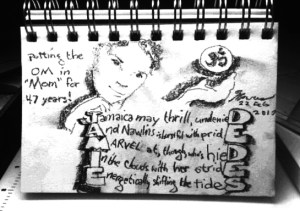 putting the
OM in
"Mom" for
47 years!
ॐ
22 Feb
Jamaica may thrill, undenied
And Nawlins is
MARVEL at, though who's hid
In the clouds with her strid
Energetically shifting the tide
JAMIE
DEDES